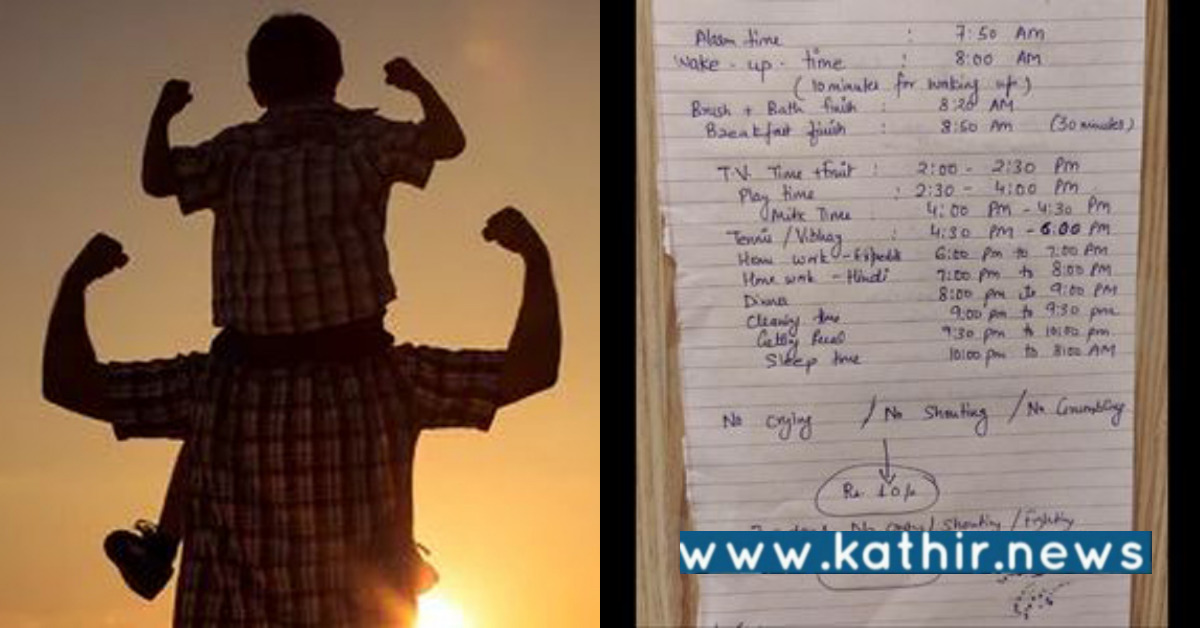 Alarm time : 7:50 AM
Wake-up-time : 8:00 AM
(10 minutes for waking up)
Brush + Bath finish : 8:20 AM
Breakfast finish : 8:50 AM (30 minutes)
T.V. Time + Fruit : 2:00 - 2:30 PM
Play time : 2:30 - 4:00 PM
Milk Time : 4:00 PM - 4:30 PM
Tennis / : 4:30 PM - 6:00 PM
Home work - 6:00 PM to 7:00 PM
Home work - Hindi 7:00 pm to 8:00 PM
Dinner 8:00 pm to 9:00 PM
Cleaning time 9:00 pm to 9:30 pm
9:30 pm to 10:00 pm
Sleep time 10:00 pm to 8:00 AM
No Crying / No Shouting / No Grumbling
Rs. 10/-
No / Shouting / Fighting
www.kathir.news